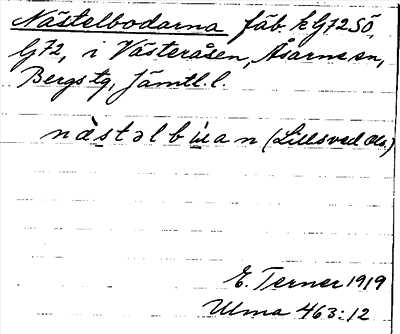 Nästelbodarna fäb. k G72SÖ,
G72, i Västeråsen, Åsarne sn,
Bergs tg, Jämtl. l.
nàstəlbʉan (Lillsved Ås.)
E. Terner 1919
Ulma 463:12